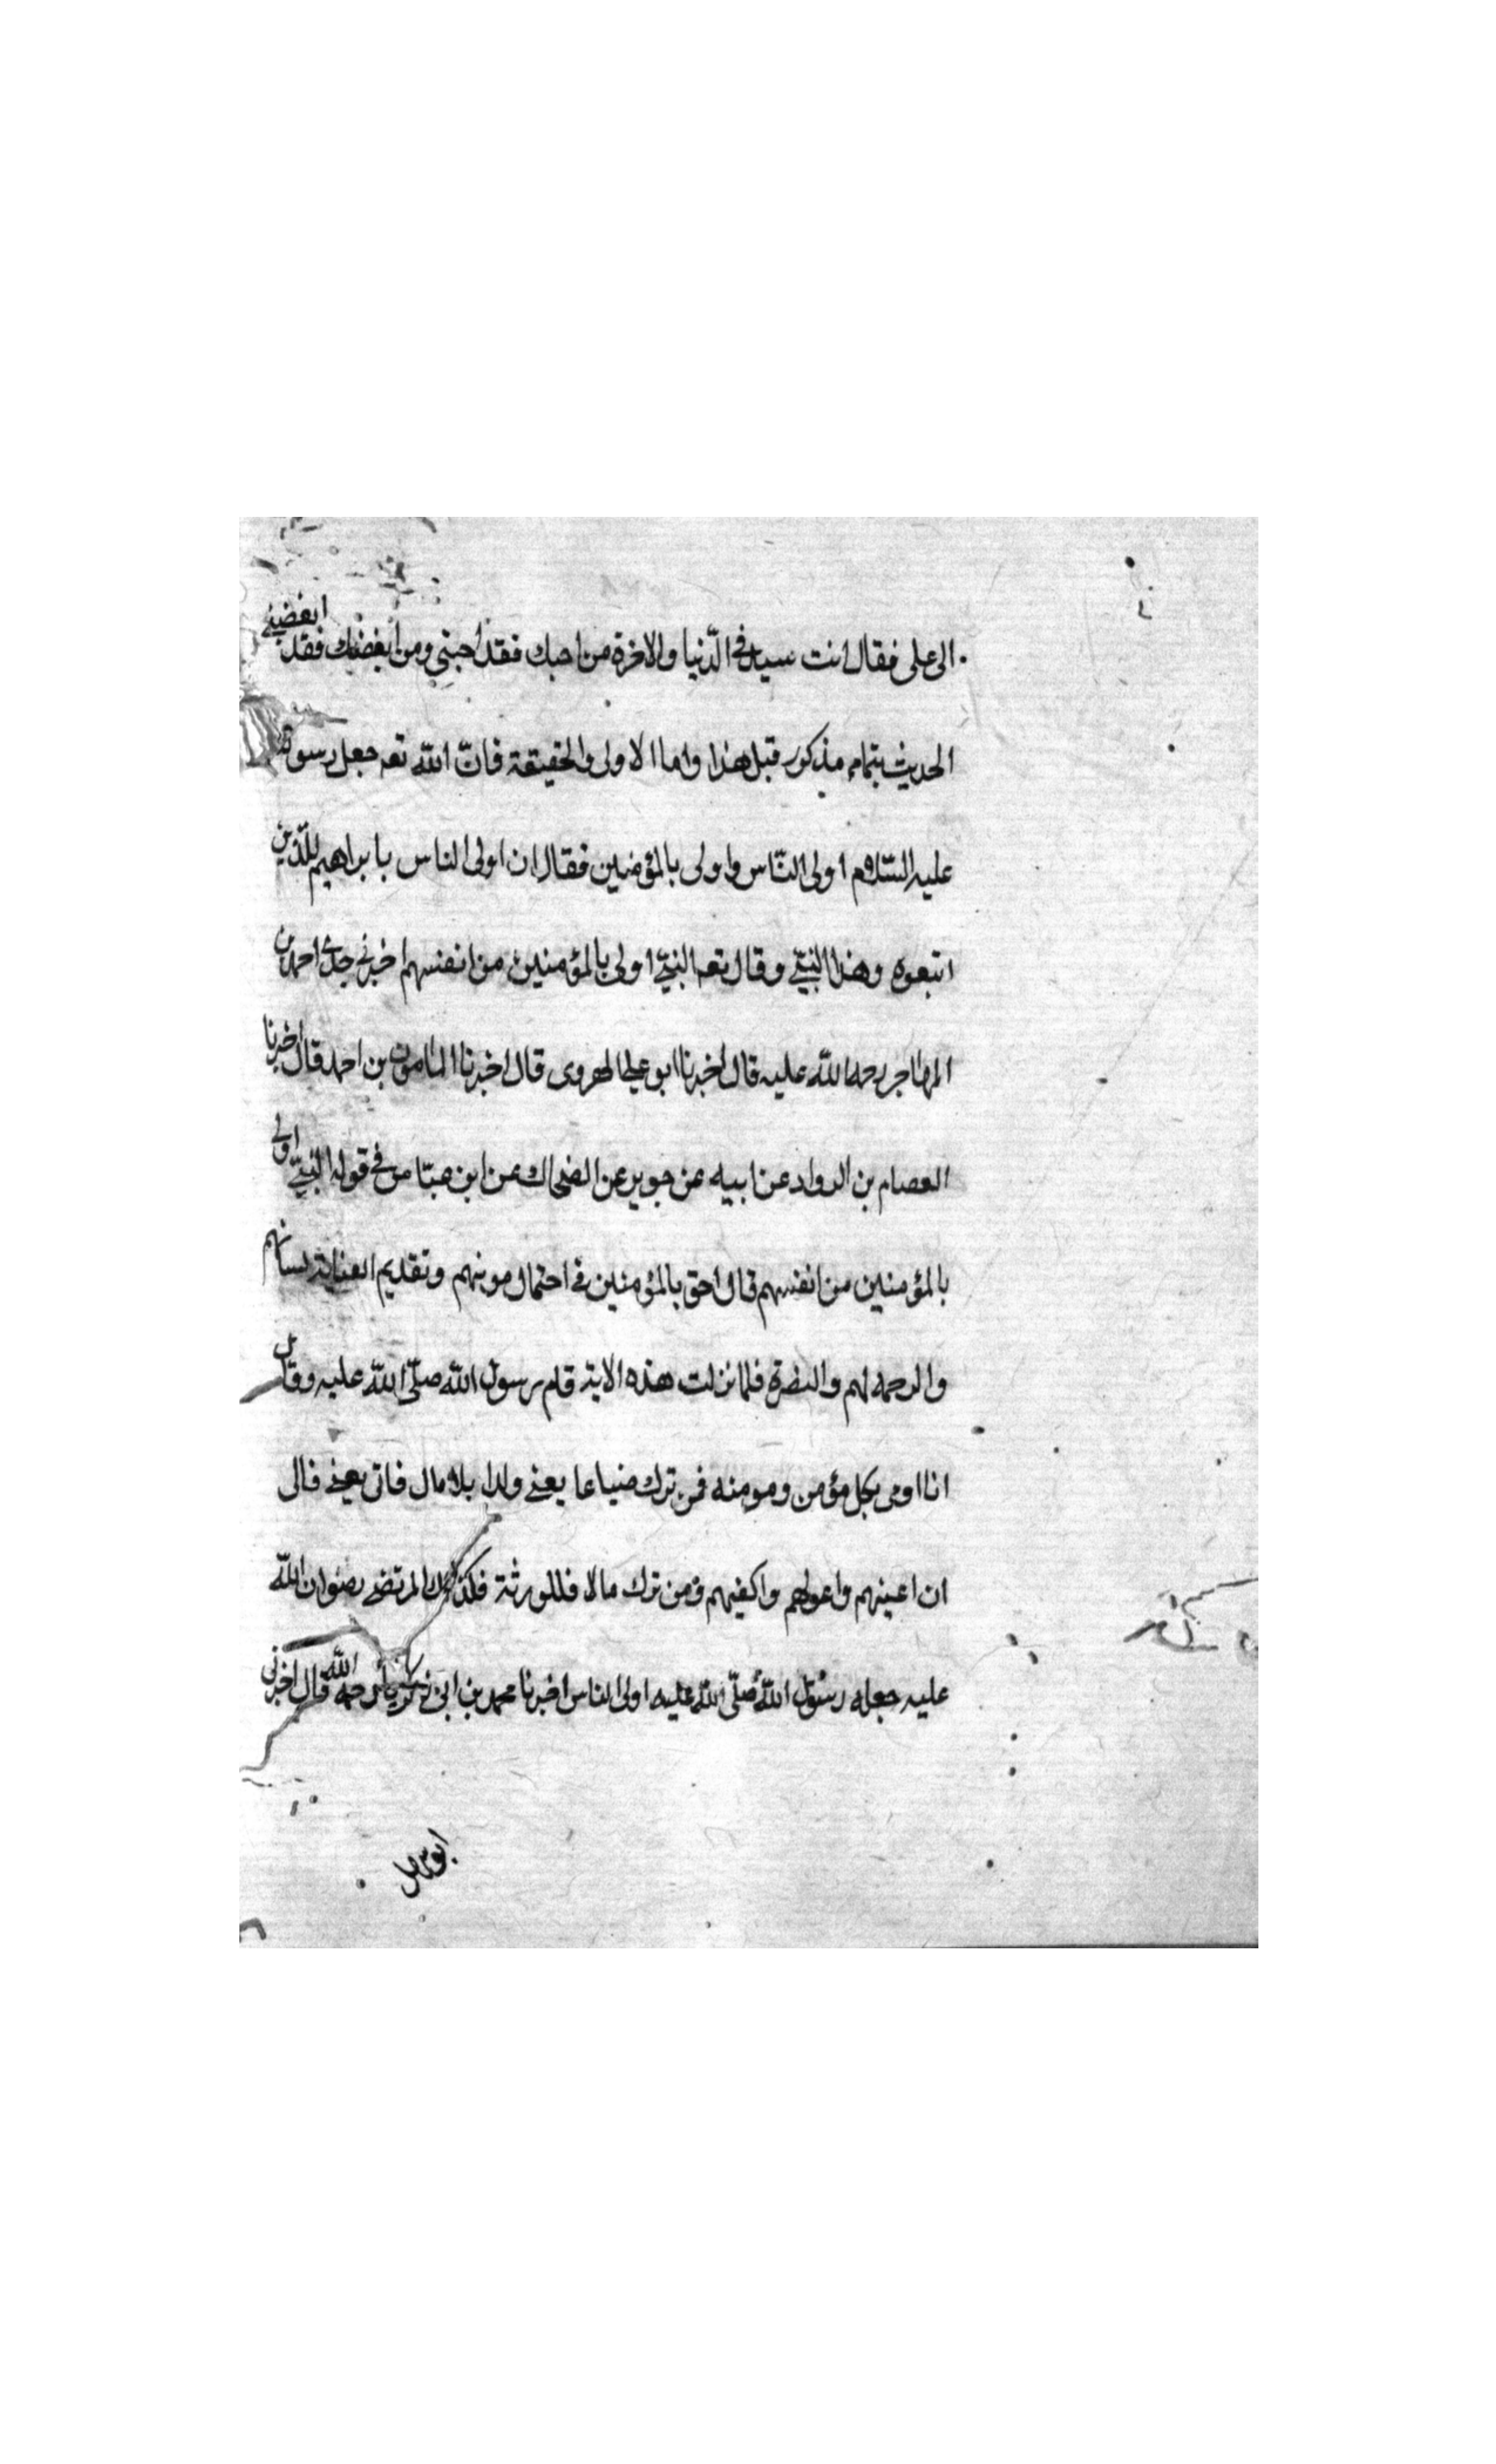 الى على فقال انت سيد فى الدّنيا والاخرة من احبك فقد احبنى ومن ابغضك فقد ابغضنى
الحديث بتمامه مذكور قبل هذا واما الاولى والحقيقة فانّ الله تعه جعل رسوله
عليه السّلام اولى النّاس واولى بالمؤمنين فقال ان اولى الناس بابراهيم للذّين
اتبعوه وهذا النبىّ وقال تعه النبىّ اولى بالمؤمنين من انفسهم اخبرنى جدى احمد بن
المهاجر رحمه الله عليه قال اخبرنا ابو على الهروى قال اخبرنا المامون بن احمد قال اخبرنا
العصام بن الرواد عن ابيه عن جويبر عن الضحاك عن ابن عبّاس فى قوله النبىّ اولى
بالمؤمنين من انفسهم قال احق بالمؤمنين فى احتمال مونهم وتقديم العناية
والرحمه لهم والنصرة فلما نزلت هذه الاية قام رسول الله صلّى الله عليه وقال
انا اولى بكل مؤمن ومومنه فمن ترك ضياعا يعنى ولدا بلا مال فاتى يعنى فالى
ان اعينهم واعولهم واكفيهم ومن ترك مالا فللورثة فلذلك المرتضى رضوان الله
عليه جعله رسول الله صلّى الله عليه اولى الناس اخبرنا محمد بن ابى زكريا رحمه الله قال اخبرنى